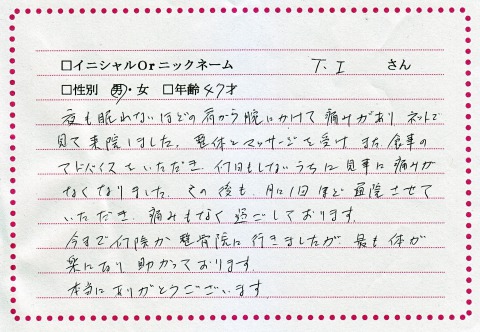 □イニシャルOrニックネーム T. I さん
□性別 男・女 □年齢 47才
夜も眠れないほどの肩から腕にかけて痛みがあり ネットで
見て来院しました。整体とマッサージを受け また食事の
アドバイスをいただき、何日もしないうちに見事に痛みが
なくなりました。その後も、月に1回ほど通院させて
いただき、痛みもなく過ごしております。
今まで何院か整骨院に行きましたが 最も体が
楽になり助かっております。
本当にありがとうございます